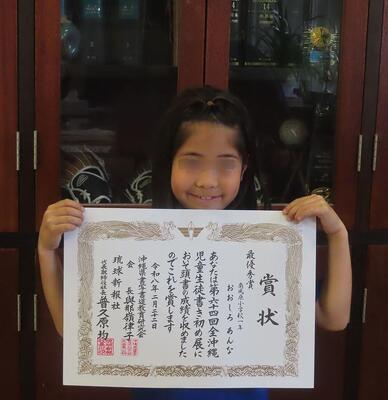 賞状
最優秀賞
南風原小学校 一年
おおしろ あんな
あなたは第六十四回全沖縄
児童生徒書き初め展に
おいて頭書の成績を収めました
のでこれを賞します
令和八年二月二十二日
沖縄県書写書道教育研究会
会長 與那嶺律子
琉球新報社
代表取締役社長 普久原均